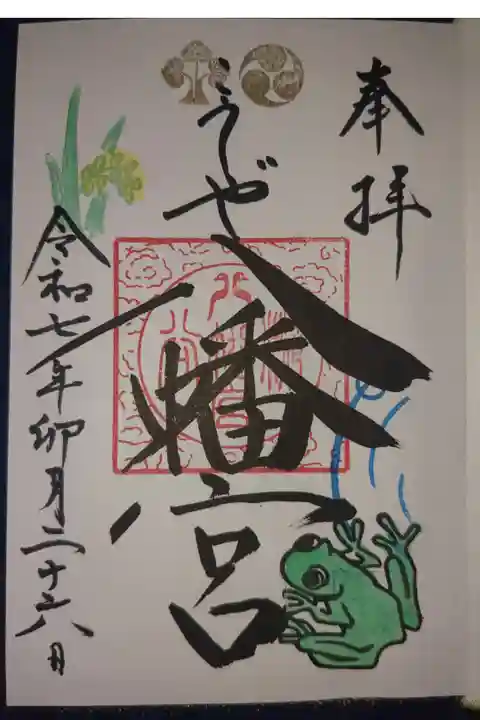 奉拝
うじや
八幡宮
令和七年卯月二十六日